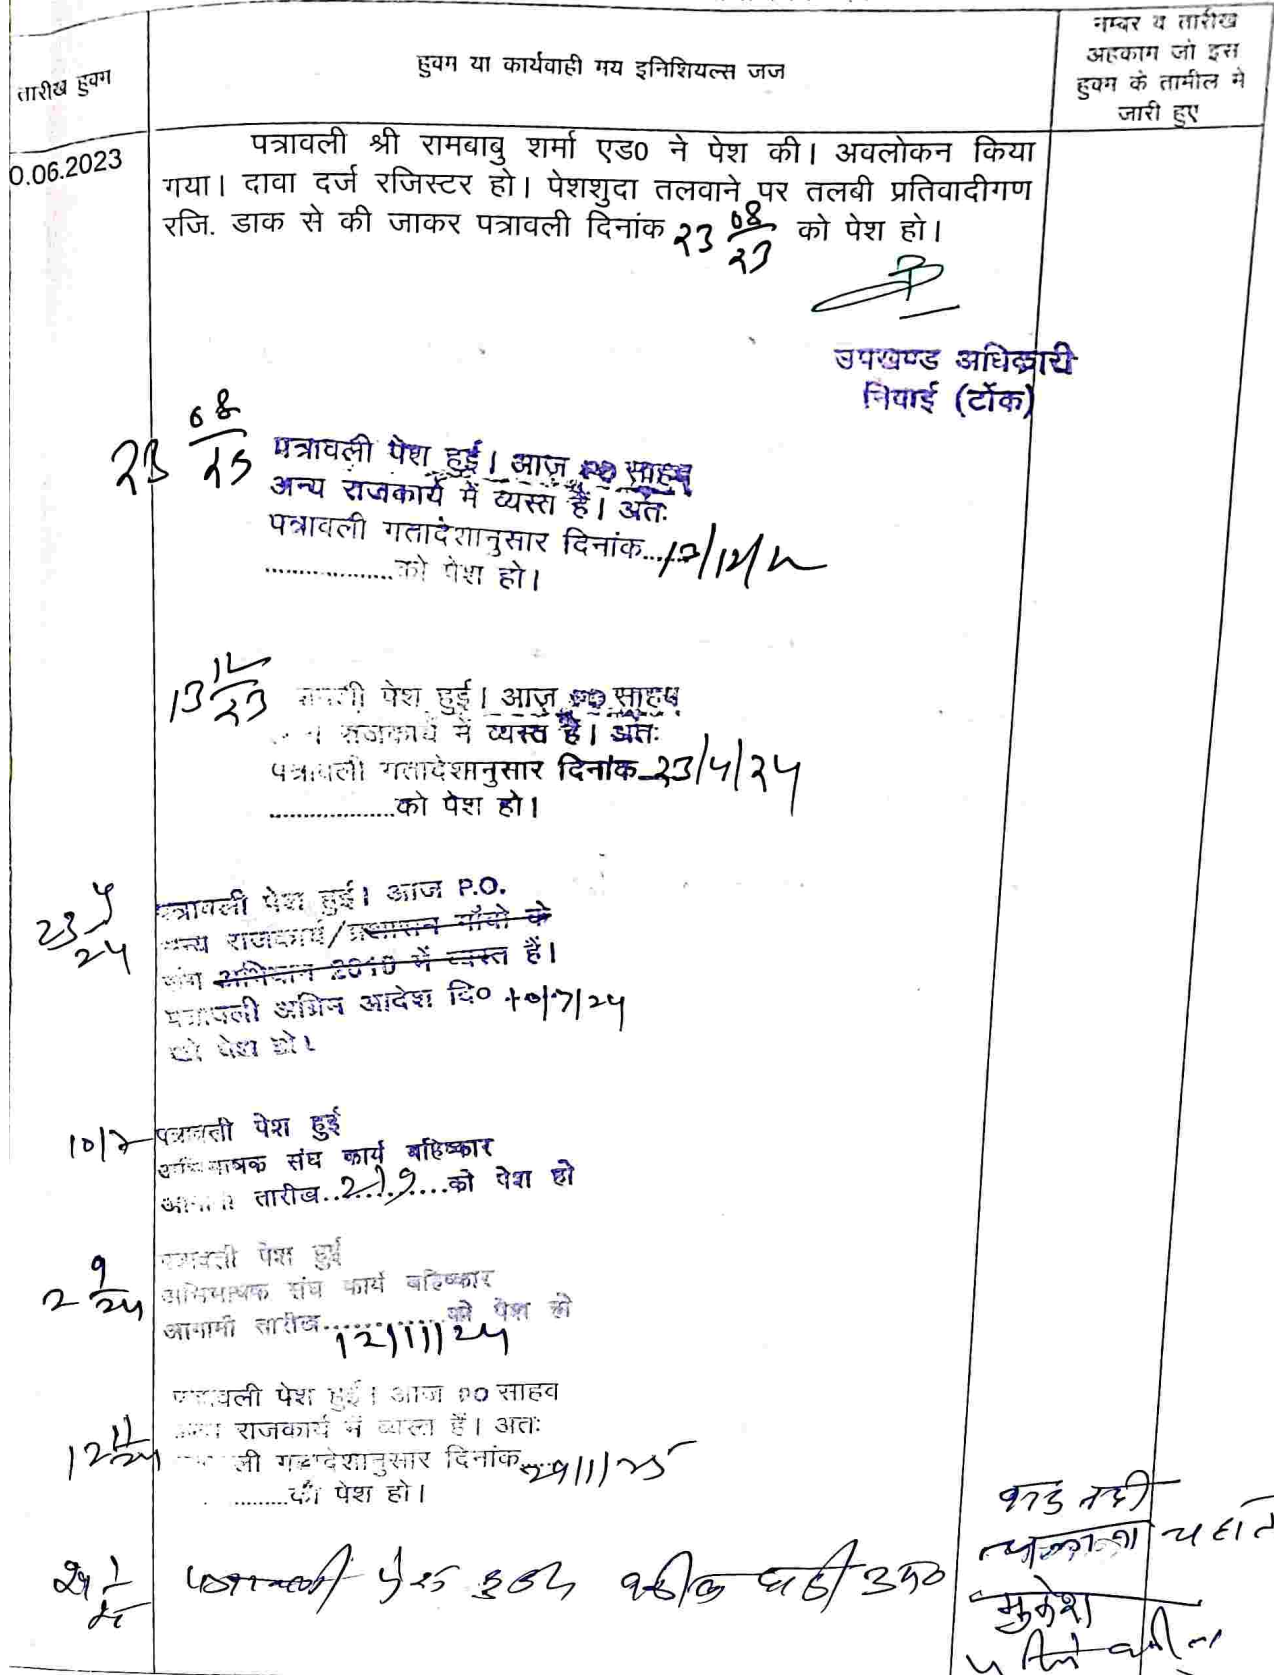 तारीख हुक्म
हुक्म या कार्यवाही मय इनिशियल्स जज
नम्बर व तारीख
अहकाम जो इस
हुक्म के तामील मे
जारी हुए
0.06.2023
पत्रावली श्री रामबाबु शर्मा एड0 ने पेश की। अवलोकन किया
गया। दावा दर्ज रजिस्टर हो। पेशशुदा तलवाने पर तलबी प्रतिवादीगण
रजि. डाक से की जाकर पत्रावली दिनांक 23 08/23 को पेश हो।
उपखण्ड अधिकारी
निवाई (टोंक)
23 08/23
पत्रावली पेश हुई। आज PO साहब
अन्य राजकार्य में व्यस्त हैं। अतः
पत्रावली गतादेशानुसार दिनांक......
..................को पेश हो।
13 12/23
पेश हुई। आज PO साहब
राजकार्य में व्यस्त है। अतः
पत्रावली गतादेशानुसार दिनांक 23/4/24
..................को पेश हो।
23 4/24
पत्रावली पेश हुई। आज P.O.
अन्य राजकार्य/प्रशासन गाँवो के
संग अभियान 2010 में व्यस्त हैं।
पत्रावली अग्रिम आदेश दि० 10/7/24
को पेश हो।
10/7
पत्रावली पेश हुई
अभिभाषक संघ कार्य बहिष्कार
आगामी तारीख..2/9....को पेश हो
2 9/24
पत्रावली पेश हुई
अभिभाषक संघ कार्य बहिष्कार
आगामी तारीख............को पेश हो
12/11/24
12 11/24
पत्रावली पेश हुई। आज PO साहव
अन्य राजकार्य में व्यस्त हैं। अतः
पत्रावली गतादेशानुसार दिनांक 29/1/25
.........को पेश हो।
पत्रावली पेश हुई
मुकेश